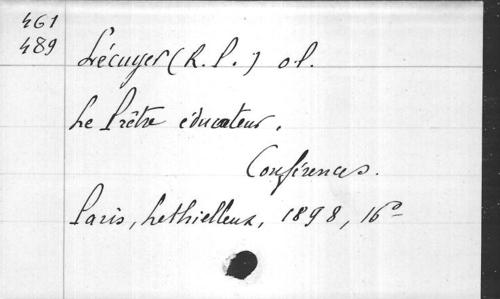 461
489
Lécuyer (R. P.) o. p.
Le Prêtre éducateur.
Conférences.
Paris, Lethielleux, 1898, 16°